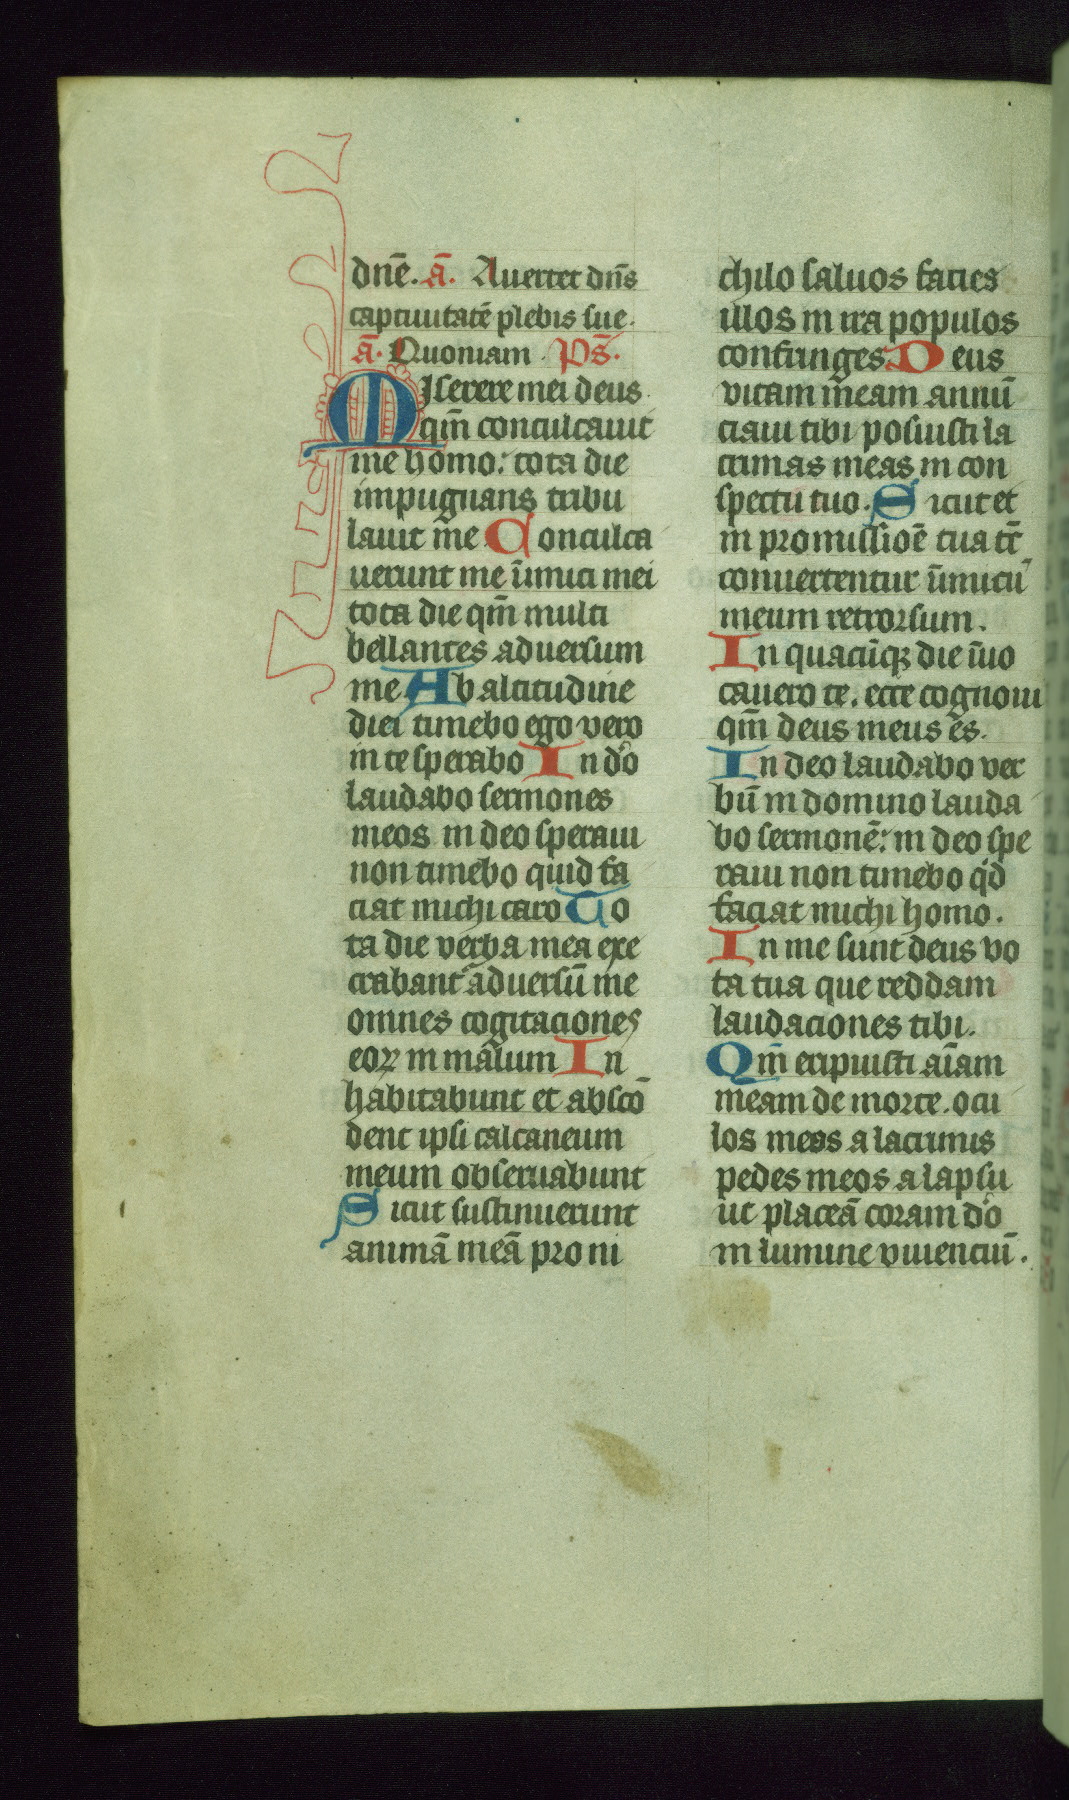 dn̄e. ā. Auertet dn̄s
captiuitatē plebis sue.
ā. Quoniam. Ps̄.
Miserere mei deus
qm̄ conculcauit
me homo: tota die
impugnans tribu
lauit me. Conculca
uerunt me īnimici mei
tota die qm̄ multi
bellantes aduersum
me. Ab altitudine
diei timebo ego vero
in te sperabo In do
laudabo sermones
meos in deo speraui
non timebo quid fa
ciat michi caro To
ta die verba mea exe
crabant᷑ aduersū me
omnes cogitaciones
eoꝝ in malum In
habitabunt et abscō
dent ipsi calcaneum
meum obseruabunt
Sicut sustinuerunt
animā meā pro ni
chilo saluos facies
illos in ira populos
confringes Deus
vitam meam annū
ciaui tibi posuisti la
crimas meas in con
spectu tuo. Sicut et
in promissioē tua tc̄
conuertentur īnimicī
meum retrorsum.
In quacūqꝫ die īuo
cauero te. ecce cognoui
qm̄ deus meus es.
In deo laudabo ver
bū in domino lauda
bo sermonē: in deo spe
raui non timebo qd
faciat michi homo.
In me sunt deus vo
ta tua que reddam
laudaciones tibi.
Qm̄ eripuisti aīam
meam de morte. ocu
los meos a lacrimis
pedes meos a lapsu
ut placeā coram do
in lumine viuenciū.